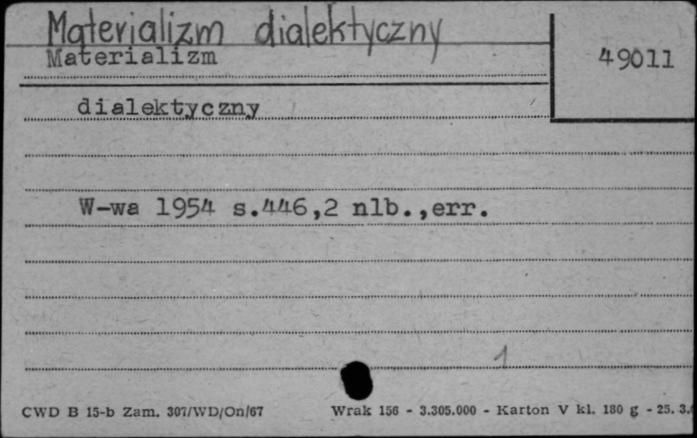 Materializm dialektyczny
Materializm
49011
dialektyczny
W-wa 1954 s.446,2 nlb.,err.
1
CWD B 15-b Zam. 307/WD/On/67 Wrak 156 - 3.305.000 - Karton V kl. 180 g - 25. 3.